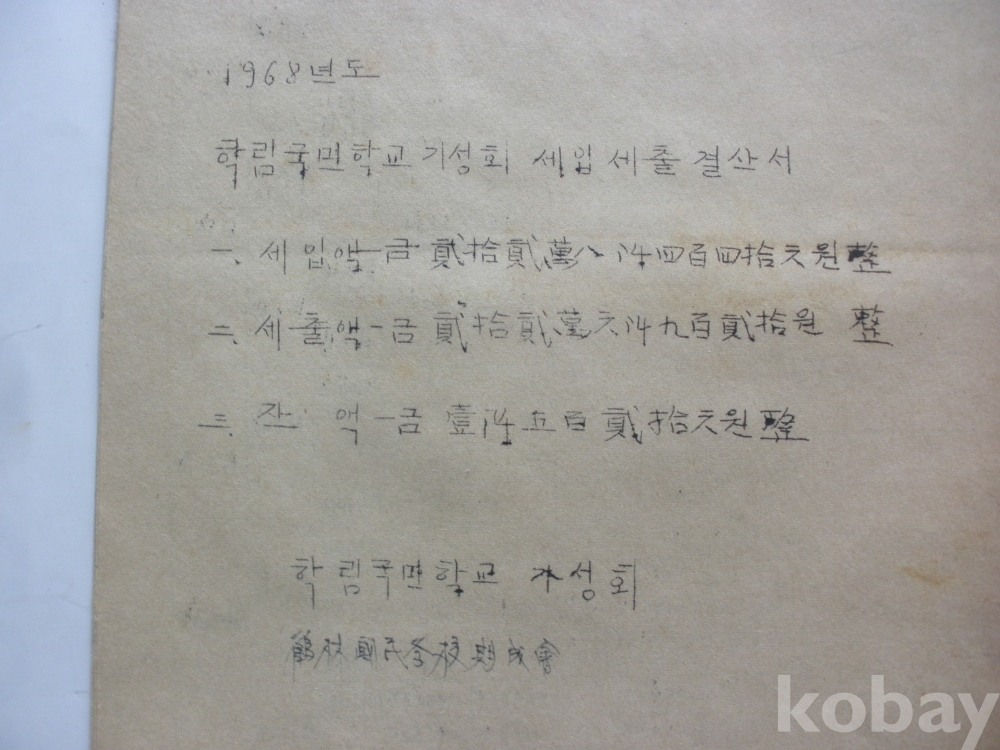 1968년도
학림국민학교 기성회 세입세출결산서
一. 세입액 一金 貳拾貳萬八仟四百四拾六원整
二. 세출액 一金 貳拾貳萬六仟九百貳拾원 整
三. 잔 액 一金 壹仟五百貳拾六원整
학림국민학교 기성회
鶴林國民学校期成會
kobay